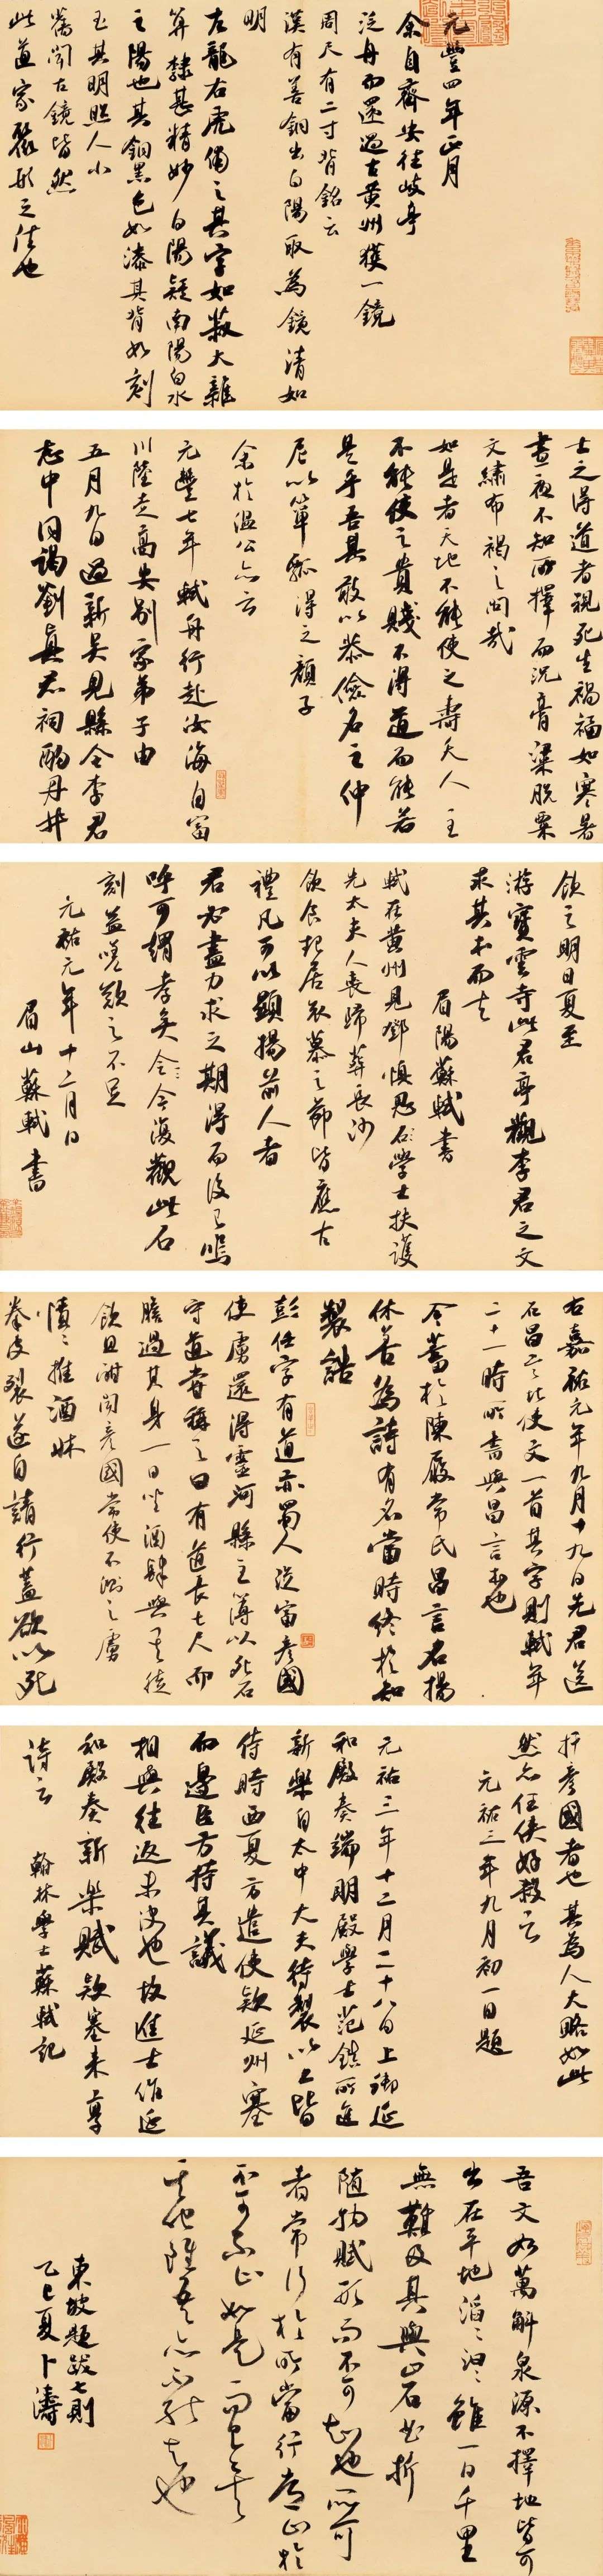 元豐四年正月
余自齊安往岐亭
泛舟而還過古黃州獲一鏡
周尺有二寸背銘云
漢有善銅出白陽取為鏡清如
明
左龍右虎俌之其字如菽大雜
篆隸甚精妙白陽疑南陽白水
之陽也其銅黑色如漆其背如刻
玉其明照人小
舊聞古鏡皆然
此道家聚形之法也
士之得道者視死生禍福如寒暑
晝夜不知所擇而況膏粱脫粟
文繡布褐之間哉
如是者天地不能使之壽夭人主
不能使之貴賤不得道而能若
是乎吾其敢以恭儉名之仲
尼以簞瓢得之顏子
余於溫公亦云
元豐七年軾舟行赴汝海自富
川陸走高安別家弟子由
五月九日過新吳見縣令李君
志中同謁劉真君祠酌丹井
飲之明日夏至
游寶雲寺此君亭觀李君之文
求其本而去
眉陽蘇軾書
軾在黃州見鄧慎思學士扶護
先太夫人喪歸葬長沙
飲食起居哀慕之節皆應古
禮凡可以顯揚前人者
君必盡力求之期得而後已嗚
呼可謂孝矣今復觀此石
刻益嗟歎之不足
元祐元年十二月日
眉山蘇軾書
右嘉祐元年九月十九日先君送
石昌言北使文一首其字則軾年
二十一時所書與昌言本也
今蓄於陳履常氏昌言名揚
休善為詩有名當時終於知
製誥
彭任字有道亦蜀人從富彥國
使虜還得靈河縣主簿以死石
守道嘗稱之曰有道長七尺而
膽過其身一日坐酒肆與其徒
飲且酣聞彥國當使不測之虜
憤憤推酒牀
拳皮裂遂自請行蓋欲以死
扞彥國者也其為人大略如此
然亦任俠好殺云
元祐三年九月初一日題
元祐三年十二月二十八日上御延
和殿奏端明殿學士范鎮所進
新樂自太中大夫待製以上皆
侍時西夏方遣使欵延州塞
而邊臣方持其議
相與往返未決也故進士作延
和殿奏新樂賦欵塞來享
詩云
翰林學士蘇軾記
吾文如萬斛泉源不擇地皆可
出在平地滔滔汩汩雖一日千里
無難及其與山石曲折
隨物賦形而不可知也所可
者常行於所當行常止於
不可不止如是而已矣
其他雖吾亦不能知也
東坡題跋七則
乙巳夏卜濤